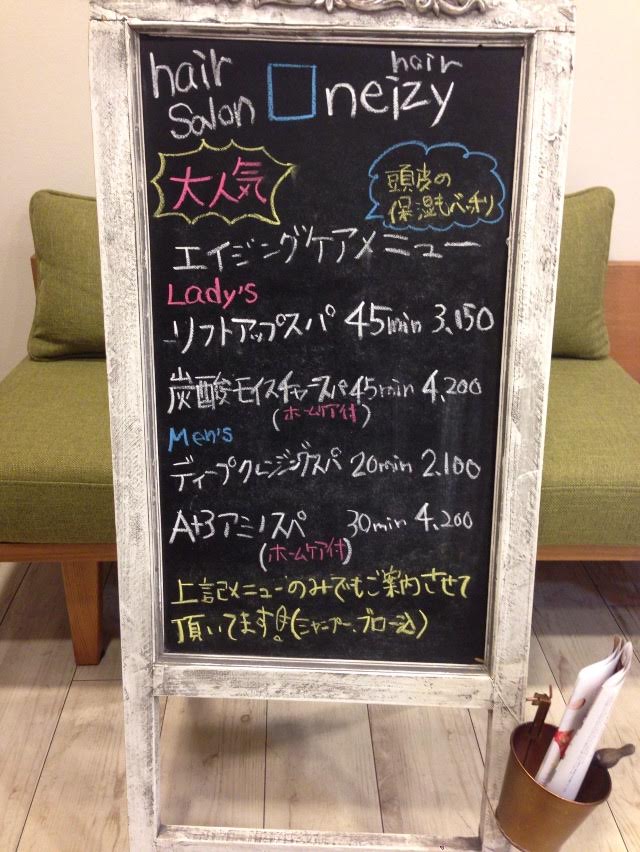 hair
salon
hair
neizy
大人気
頭皮の
保湿もバッチリ
エイジングケアメニュー
Lady's
リフトアップスパ 45min 3,150
炭酸モイスチャースパ 45min 4,200
(ホームケア付)
Men's
ディープクレンジングスパ 20min 2,100
アミノスパ 30min 4,200
(ホームケア付)
上記メニューのみでもご案内させて
頂いてます!(シャンプー、ブロー込)